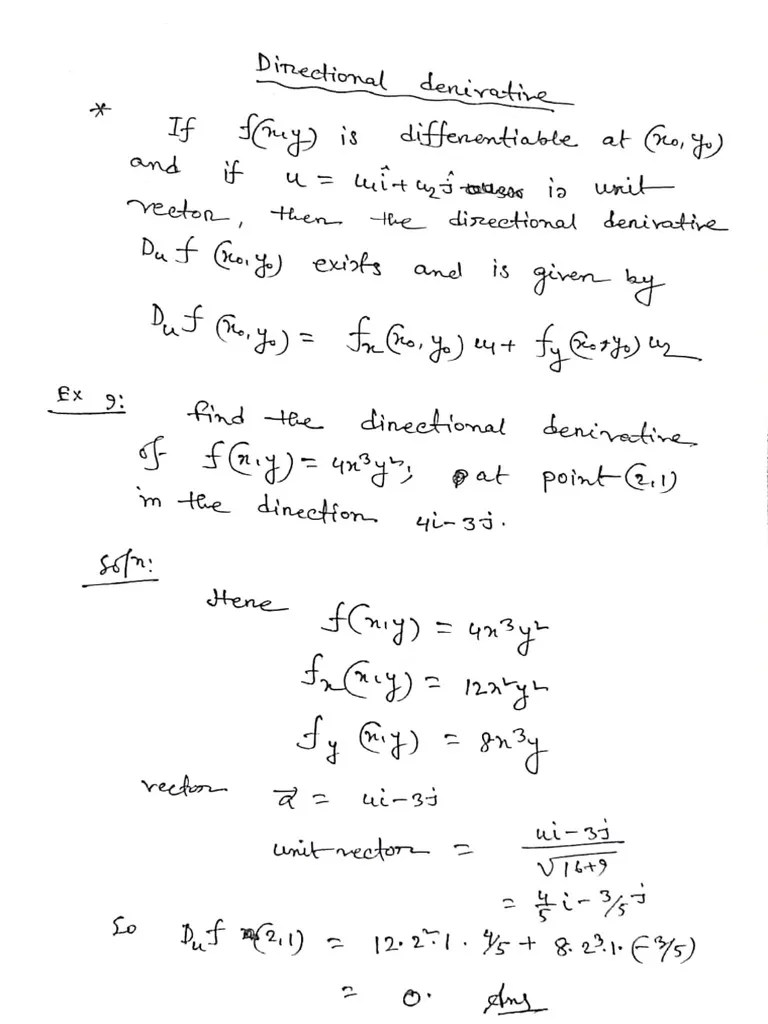 Directional derivative
* If f(x,y) is differentiable at (x₀, y₀)
and if u = u₁î + u₂ĵ is unit
vector, then the directional derivative
Dᵤf (x₀, y₀) exists and is given by
Dᵤf (x₀, y₀) = fₓ(x₀, y₀) u₁ + f_y(x₀, y₀) u₂
Ex 9: find the directional derivative
of f(x,y) = 4x³y²; at point (2,1)
in the direction 4i-3j.
Soln:
Here f(x,y) = 4x³y²
fₓ(x,y) = 12x²y²
f_y (x,y) = 8x³y
vector a⃗ = 4i-3j
unit vector = (4i-3j)/√(16+9)
= 4/5 i - 3/5 j
So Dᵤf (2,1) = 12.2².1. 4/5 + 8.2³.1.(-3/5)
= 0. Ans